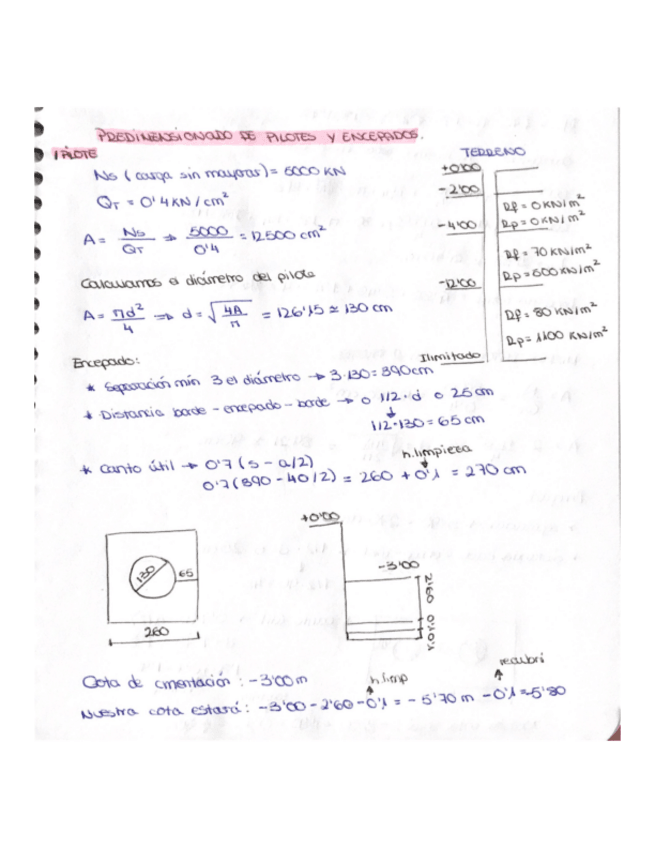 PREDIMENSIONADO DE PILOTES Y ENCEPADOS.
1 PILOTE
Ns (carga sin mayorar) = 5000 KN
QT = 0'4 KN / cm²
A = Ns / QT ⇒ 5000 / 0'4 = 12500 cm²
Calculamos el diámetro del pilote
A = πd² / 4 ⇒ d = √(4A / π) = 126'15 ≃ 130 cm
TERRENO
+0'00
-2'00
Rf = 0 KN/m²
Rp = 0 KN/m²
-4'00
Rf = 70 KN/m²
Rp = 600 KN/m²
-12'00
Rf = 80 KN/m²
Rp = 1100 KN/m²
Ilimitado
Encepado:
* Separación mín 3 el diámetro → 3·130 = 390 cm
* Distancia borde - encepado - borde → o 1/2·d o 25 cm
↓
1/2·130 = 65 cm
* Canto útil → 0'7 (s - a/2)
h.limpieza
0'7 (390 - 40/2) = 260 + 0'1 = 270 cm
130
65
260
+0'00
-3'00
2'60
0'1
0'1
Cota de cimentación : -3'00 m
h.limp
recubri
Nuestra cota estará: -3'00 - 2'60 - 0'1 = - 5'70 m - 0'1 = -5'80